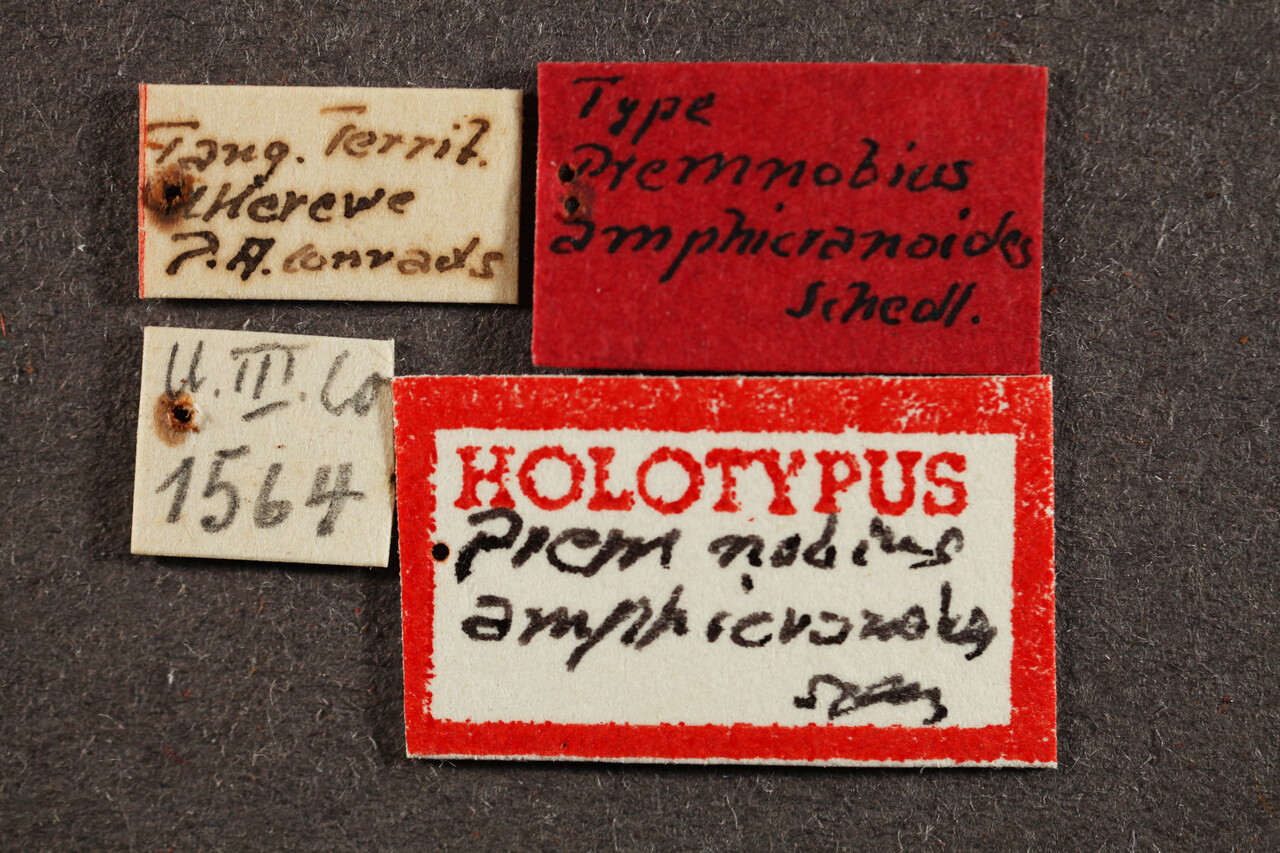 Tang. Territ.
Ukerewe
P. A. Conrads
Type
Premnobius
amphicranoides
Schedl.
U. III. Co
1564
HOLOTYPUS
Premnobius
amphicranoides